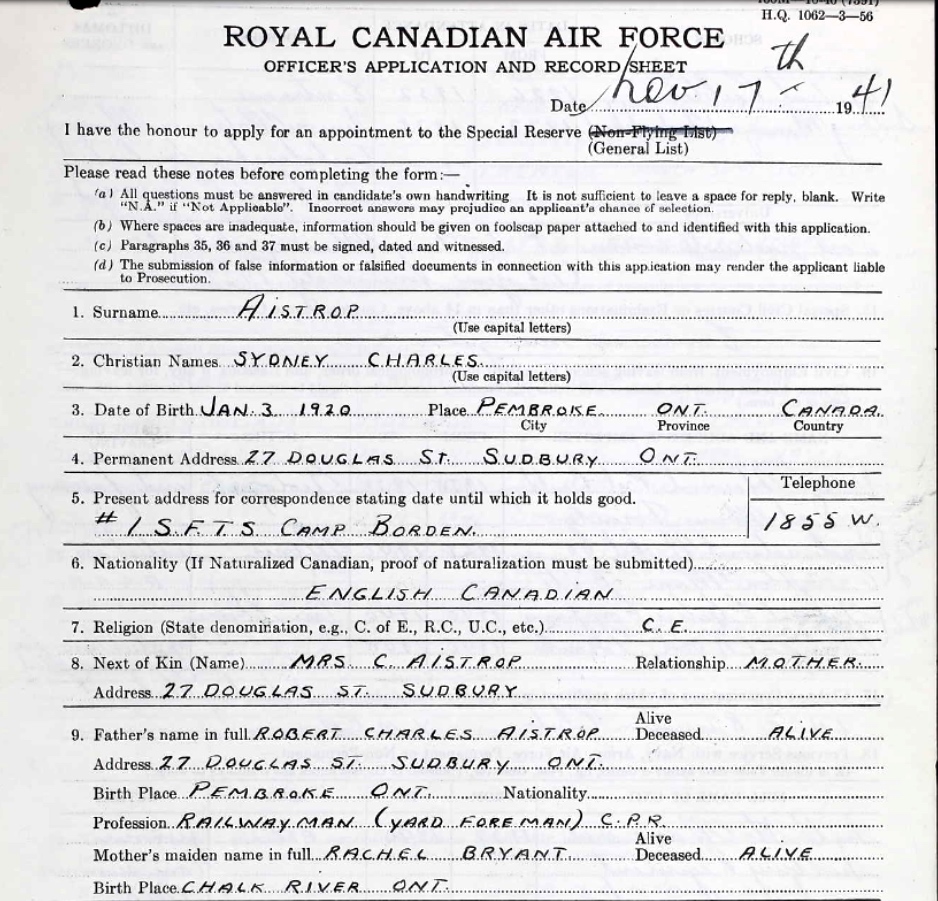 H.Q. 1062—3—56
ROYAL CANADIAN AIR FORCE
OFFICER'S APPLICATION AND RECORD SHEET
Date Nov 17th 1941
I have the honour to apply for an appointment to the Special Reserve (Non-Flying List)
(General List)
Please read these notes before completing the form:—
(a) All questions must be answered in candidate's own handwriting It is not sufficient to leave a space for reply, blank. Write
"N.A." if "Not Applicable". Incorrect answers may prejudice an applicant's chance of selection.
(b) Where spaces are inadequate, information should be given on foolscap paper attached to and identified with this application.
(c) Paragraphs 35, 36 and 37 must be signed, dated and witnessed.
(d) The submission of false information or falsified documents in connection with this application may render the applicant liable
to Prosecution.
1. Surname AISTROP
(Use capital letters)
2. Christian Names SYDNEY CHARLES.
(Use capital letters)
3. Date of Birth JAN. 3 1920 Place PEMBROKE ONT. CANADA.
City Province Country
4. Permanent Address 27 DOUGLAS ST. SUDBURY ONT.
Telephone
5. Present address for correspondence stating date until which it holds good.
# 1 S.F.T.S CAMP BORDEN. 1855 W.
6. Nationality (If Naturalized Canadian, proof of naturalization must be submitted)
ENGLISH CANADIAN
7. Religion (State denomination, e.g., C. of E., R.C., U.C., etc.) C.E.
8. Next of Kin (Name) MRS C. AISTROP Relationship MOTHER.
Address 27 DOUGLAS ST. SUDBURY
Alive
9. Father's name in full ROBERT CHARLES AISTROP Deceased ALIVE
Address 27 DOUGLAS ST. SUDBURY ONT.
Birth Place PEMBROKE ONT. Nationality
Profession RAILWAYMAN (YARD FOREMAN) C.P.R.
Alive
Mother's maiden name in full RACHEL BRYANT. Deceased ALIVE
Birth Place CHALK RIVER ONT.